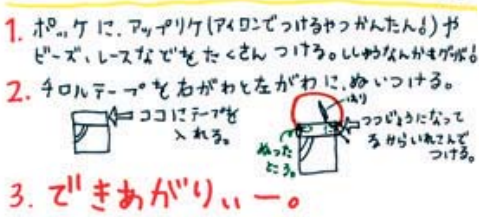 1. ポッケに、アップリケ(アイロンでつけるやつかんたん!)や
ビーズ、レースなどをたくさんつける。ししゅうなんかもグッド!
2. チロルテープを右がわと左がわに、ぬいつける。
ココにテープを
入れる。
はり
ぬった
ところ。
つつじょうになって
るからいれこんで
つける。
3. できあがりぃー。